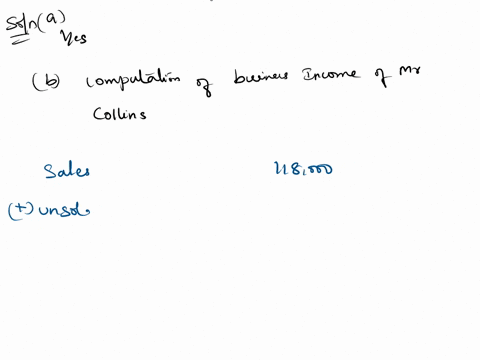 Soln (a)
Yes
(b) Computation of business Income of Mr
Collins
Sales 118,000
(+) unsol